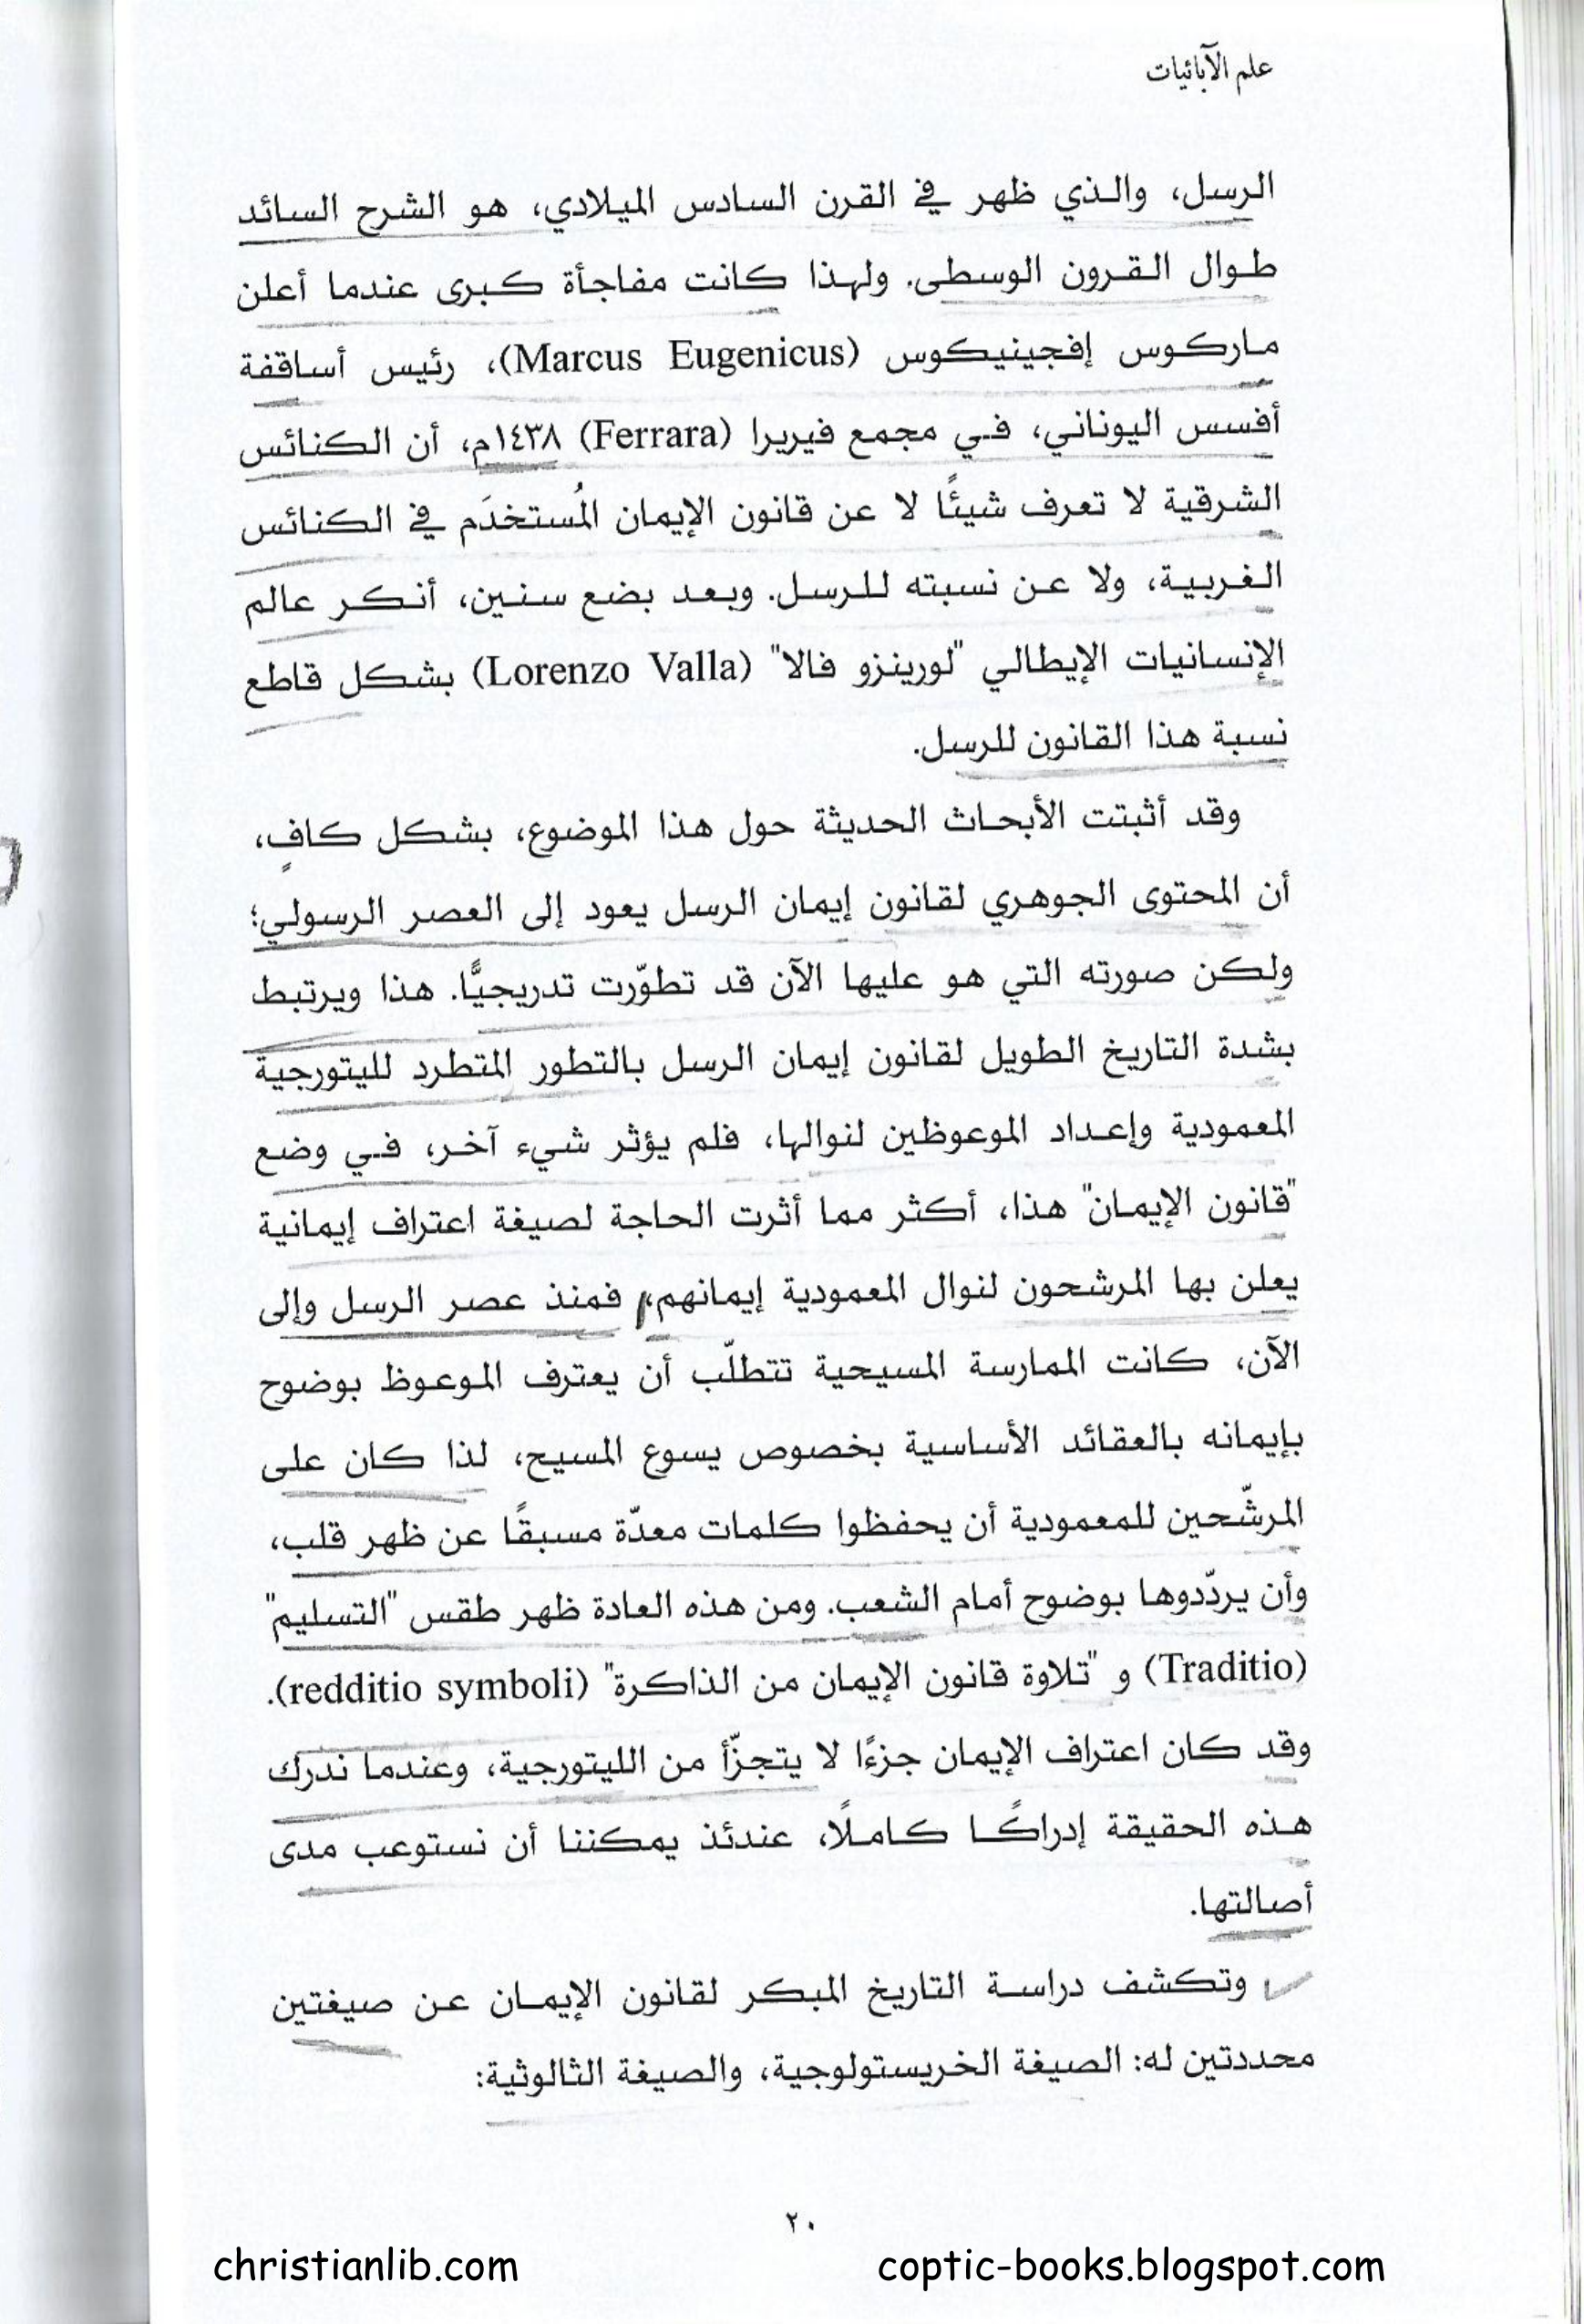 علم الآبائيات
الرسل، والذي ظهر في القرن السادس الميلادي، هو الشرح السائد
طوال القرون الوسطى. ولهذا كانت مفاجأة كبرى عندما أعلن
ماركوس إفجينيكوس (Marcus Eugenicus)، رئيس أساقفة
أفسس اليوناني، في مجمع فيريرا (Ferrara) ١٤٣٨م، أن الكنائس
الشرقية لا تعرف شيئًا لا عن قانون الإيمان المُستخدَم في الكنائس
الغربية، ولا عن نسبته للرسل. وبعد بضع سنين، أنكر عالم
الإنسانيات الإيطالي "لورينزو فالا" (Lorenzo Valla) بشكل قاطع
نسبة هذا القانون للرسل.
وقد أثبتت الأبحاث الحديثة حول هذا الموضوع، بشكل كافٍ،
أن المحتوى الجوهري لقانون إيمان الرسل يعود إلى العصر الرسولي؛
ولكن صورته التي هو عليها الآن قد تطوّرت تدريجيًّا. هذا ويرتبط
بشدة التاريخ الطويل لقانون إيمان الرسل بالتطور المتطرد لليتورجية
المعمودية وإعداد الموعوظين لنوالها، فلم يؤثر شيء آخر، في وضع
"قانون الإيمان" هذا، أكثر مما أثرت الحاجة لصيغة اعتراف إيمانية
يعلن بها المرشحون لنوال المعمودية إيمانهم، فمنذ عصر الرسل وإلى
الآن، كانت الممارسة المسيحية تتطلّب أن يعترف الموعوظ بوضوح
بإيمانه بالعقائد الأساسية بخصوص يسوع المسيح، لذا كان على
المرشّحين للمعمودية أن يحفظوا كلمات معدّة مسبقًا عن ظهر قلب،
وأن يردّدوها بوضوح أمام الشعب. ومن هذه العادة ظهر طقس "التسليم"
(Traditio) و "تلاوة قانون الإيمان من الذاكرة" (redditio symboli).
وقد كان اعتراف الإيمان جزءًا لا يتجزّأ من الليتورجية، وعندما ندرك
هذه الحقيقة إدراكًا كاملًا، عندئذ يمكننا أن نستوعب مدى
أصالتها.
وتكشف دراسة التاريخ المبكر لقانون الإيمان عن صيغتين
محددتين له: الصيغة الخريستولوجية، والصيغة الثالوثية:
٢٠
christianlib.com coptic-books.blogspot.com